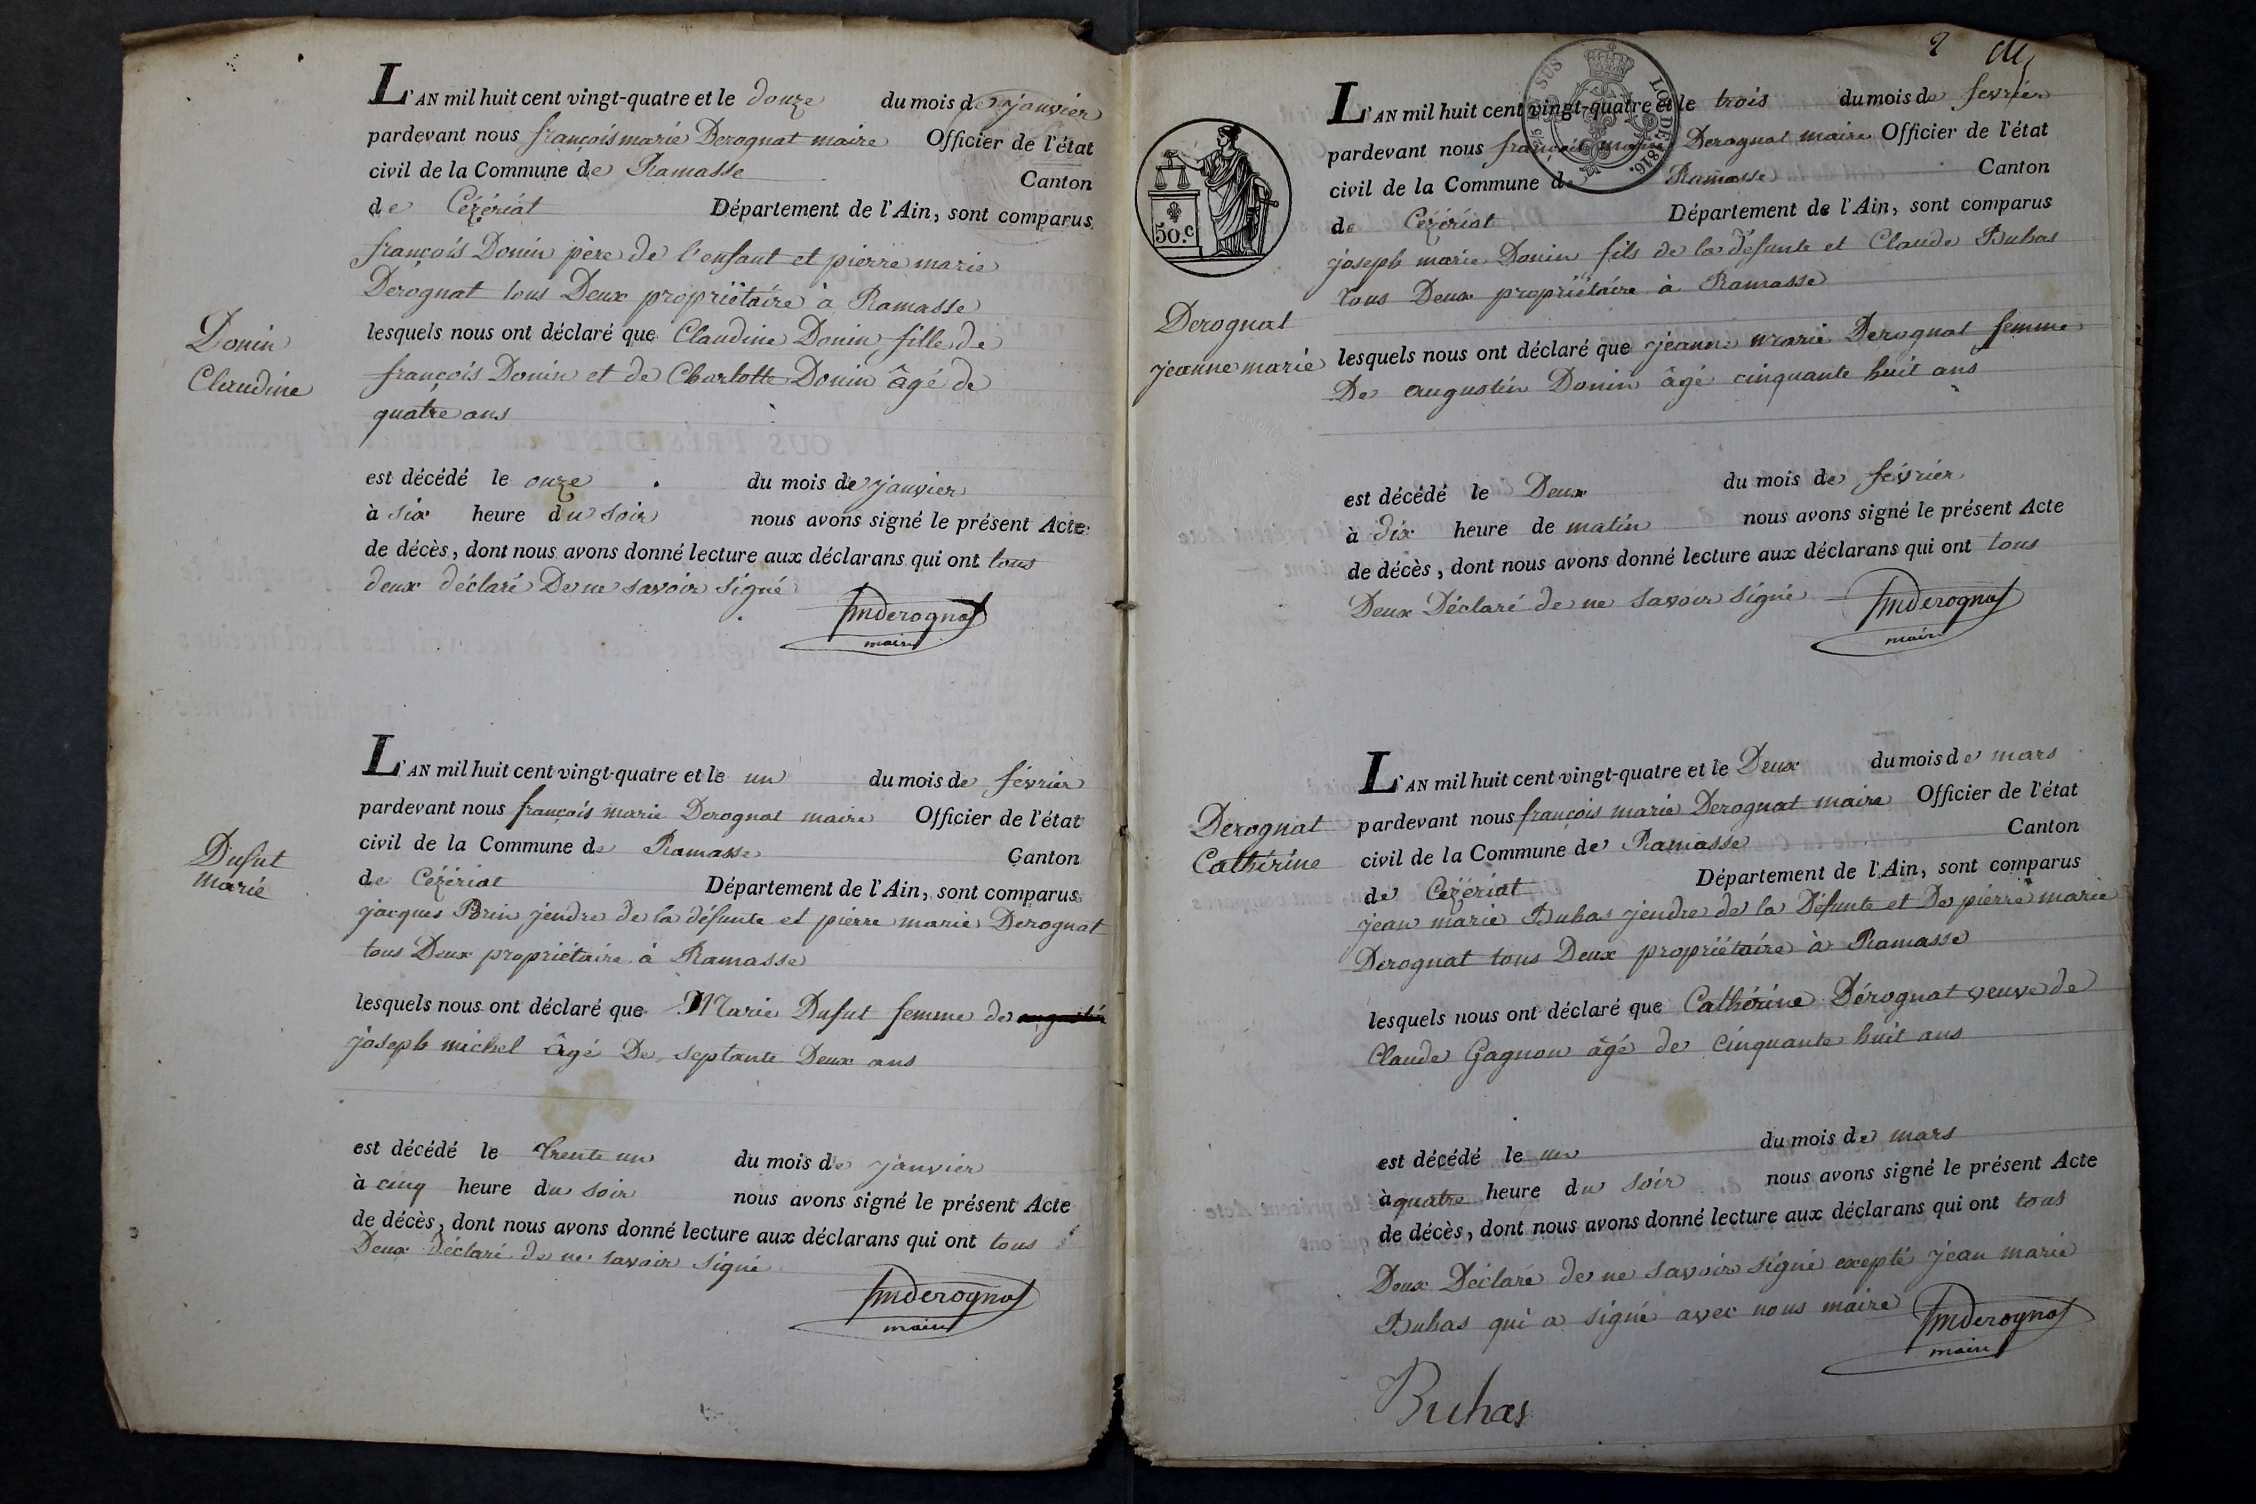 Donin
Claudine
L'AN mil huit cent vingt-quatre et le douze du mois de janvier
pardevant nous françois marie Derognat maire Officier de l'état
civil de la Commune de Ramasse Canton
de Cézériat Département de l'Ain, sont comparus
françois Donin père de l'enfant et pierre marie
Derognat tous Deux propriétaire à Ramasse
lesquels nous ont déclaré que Claudine Donin fille de
françois Donin et de Charlotte Donin âgé de
quatre ans
est décédé le onze du mois de janvier
à six heure du soir nous avons signé le présent Acte
de décès, dont nous avons donné lecture aux déclarans qui ont tous
deux déclaré De ne savoir signé
fmderognat
maire
Dufut
marie
L'AN mil huit cent vingt-quatre et le un du mois de février
pardevant nous françois marie Derognat maire Officier de l'état
civil de la Commune de Ramasse Canton
de Cézériat Département de l'Ain, sont comparus
jacques Brin jendre de la défunte et pierre marie Derognat
tous Deux propriétaire à Ramasse
lesquels nous ont déclaré que Marie Dufut femme de
joseph michel âgé De septante Deux ans
est décédé le trente un du mois de janvier
à cinq heure du soir nous avons signé le présent Acte
de décès, dont nous avons donné lecture aux déclarans qui ont tous
Deux déclaré de ne savoir signé
fmderognat
maire
2
LOI DE 1816.
50.c
Derognat
jeanne marie
L'AN mil huit cent vingt-quatre et le trois du mois de fevrier
pardevant nous françois marie Derognat maire Officier de l'état
civil de la Commune de Ramasse Canton
de Cézériat Département de l'Ain, sont comparus
joseph marie Donin fils de la défunte et Claude Buhas
tous Deux propriétaire à Ramasse
lesquels nous ont déclaré que jeanne marie Derognat femme
De augustin Donin âgé cinquante huit ans
est décédé le Deux du mois de février
à dix heure de matin nous avons signé le présent Acte
de décès, dont nous avons donné lecture aux déclarans qui ont tous
Deux Déclaré de ne savoir signé
fmderognat
maire
Derognat
Cathérine
L'AN mil huit cent vingt-quatre et le Deux du mois de mars
pardevant nous françois marie Derognat maire Officier de l'état
civil de la Commune de Ramasse Canton
de Cezériat Département de l'Ain, sont comparus
jean marie Buhas jendre de la Défunte et De pierre marie
Derognat tous Deux propriétaire à Ramasse
lesquels nous ont déclaré que Cathérine Dérognat veuve de
Claude Gagnon âgé de cinquante huit ans
est décédé le un du mois de mars
à quatre heure du soir nous avons signé le présent Acte
de décès, dont nous avons donné lecture aux déclarans qui ont tous
Deux Déclaré de ne savoir signé excepté jean marie
Buhas qui a signé avec nous maire
fmderognat
maire
Buhas